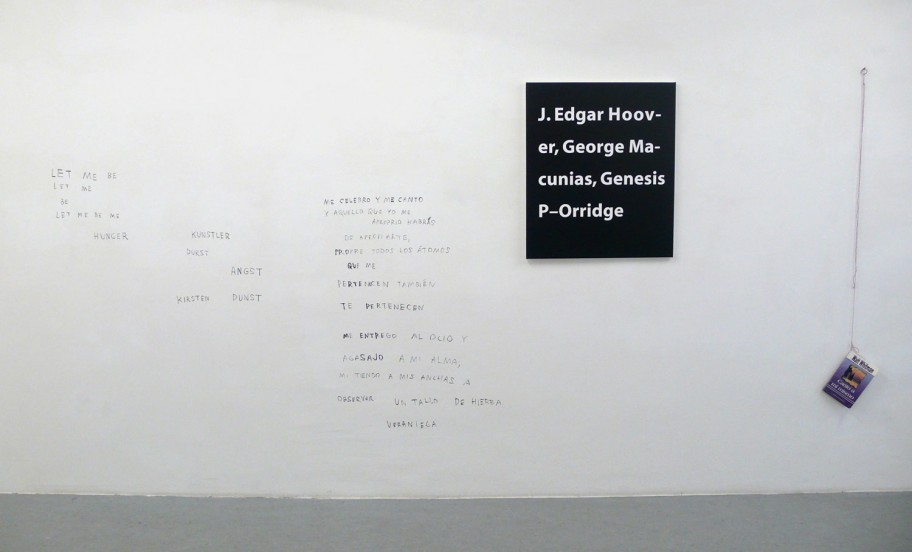 LET ME BE
LET ME
BE
LET ME BE ME
HUNGER KUNSTLER
DURST
ANGST
KIRSTEN DUNST
ME CELEBRO Y ME CANTO
Y AQUELLO QUE YO ME
APROPIO HABRÁS
DE APROPIARTE,
PORQUE TODOS LOS ÁTOMOS
QUE ME
PERTENECEN TAMBIÉN
TE PERTENECEN
ME ENTREGO AL OCIO Y
AGASAJO A MI ALMA,
ME TIENDO A MIS ANCHAS A
OBSERVAR UN TALLO DE HIERBA
VERANIEGA
J. Edgar Hoov-
er, George Ma-
cunias, Genesis
P–Orridge
Walt Whitman
Canto a
mí mismo